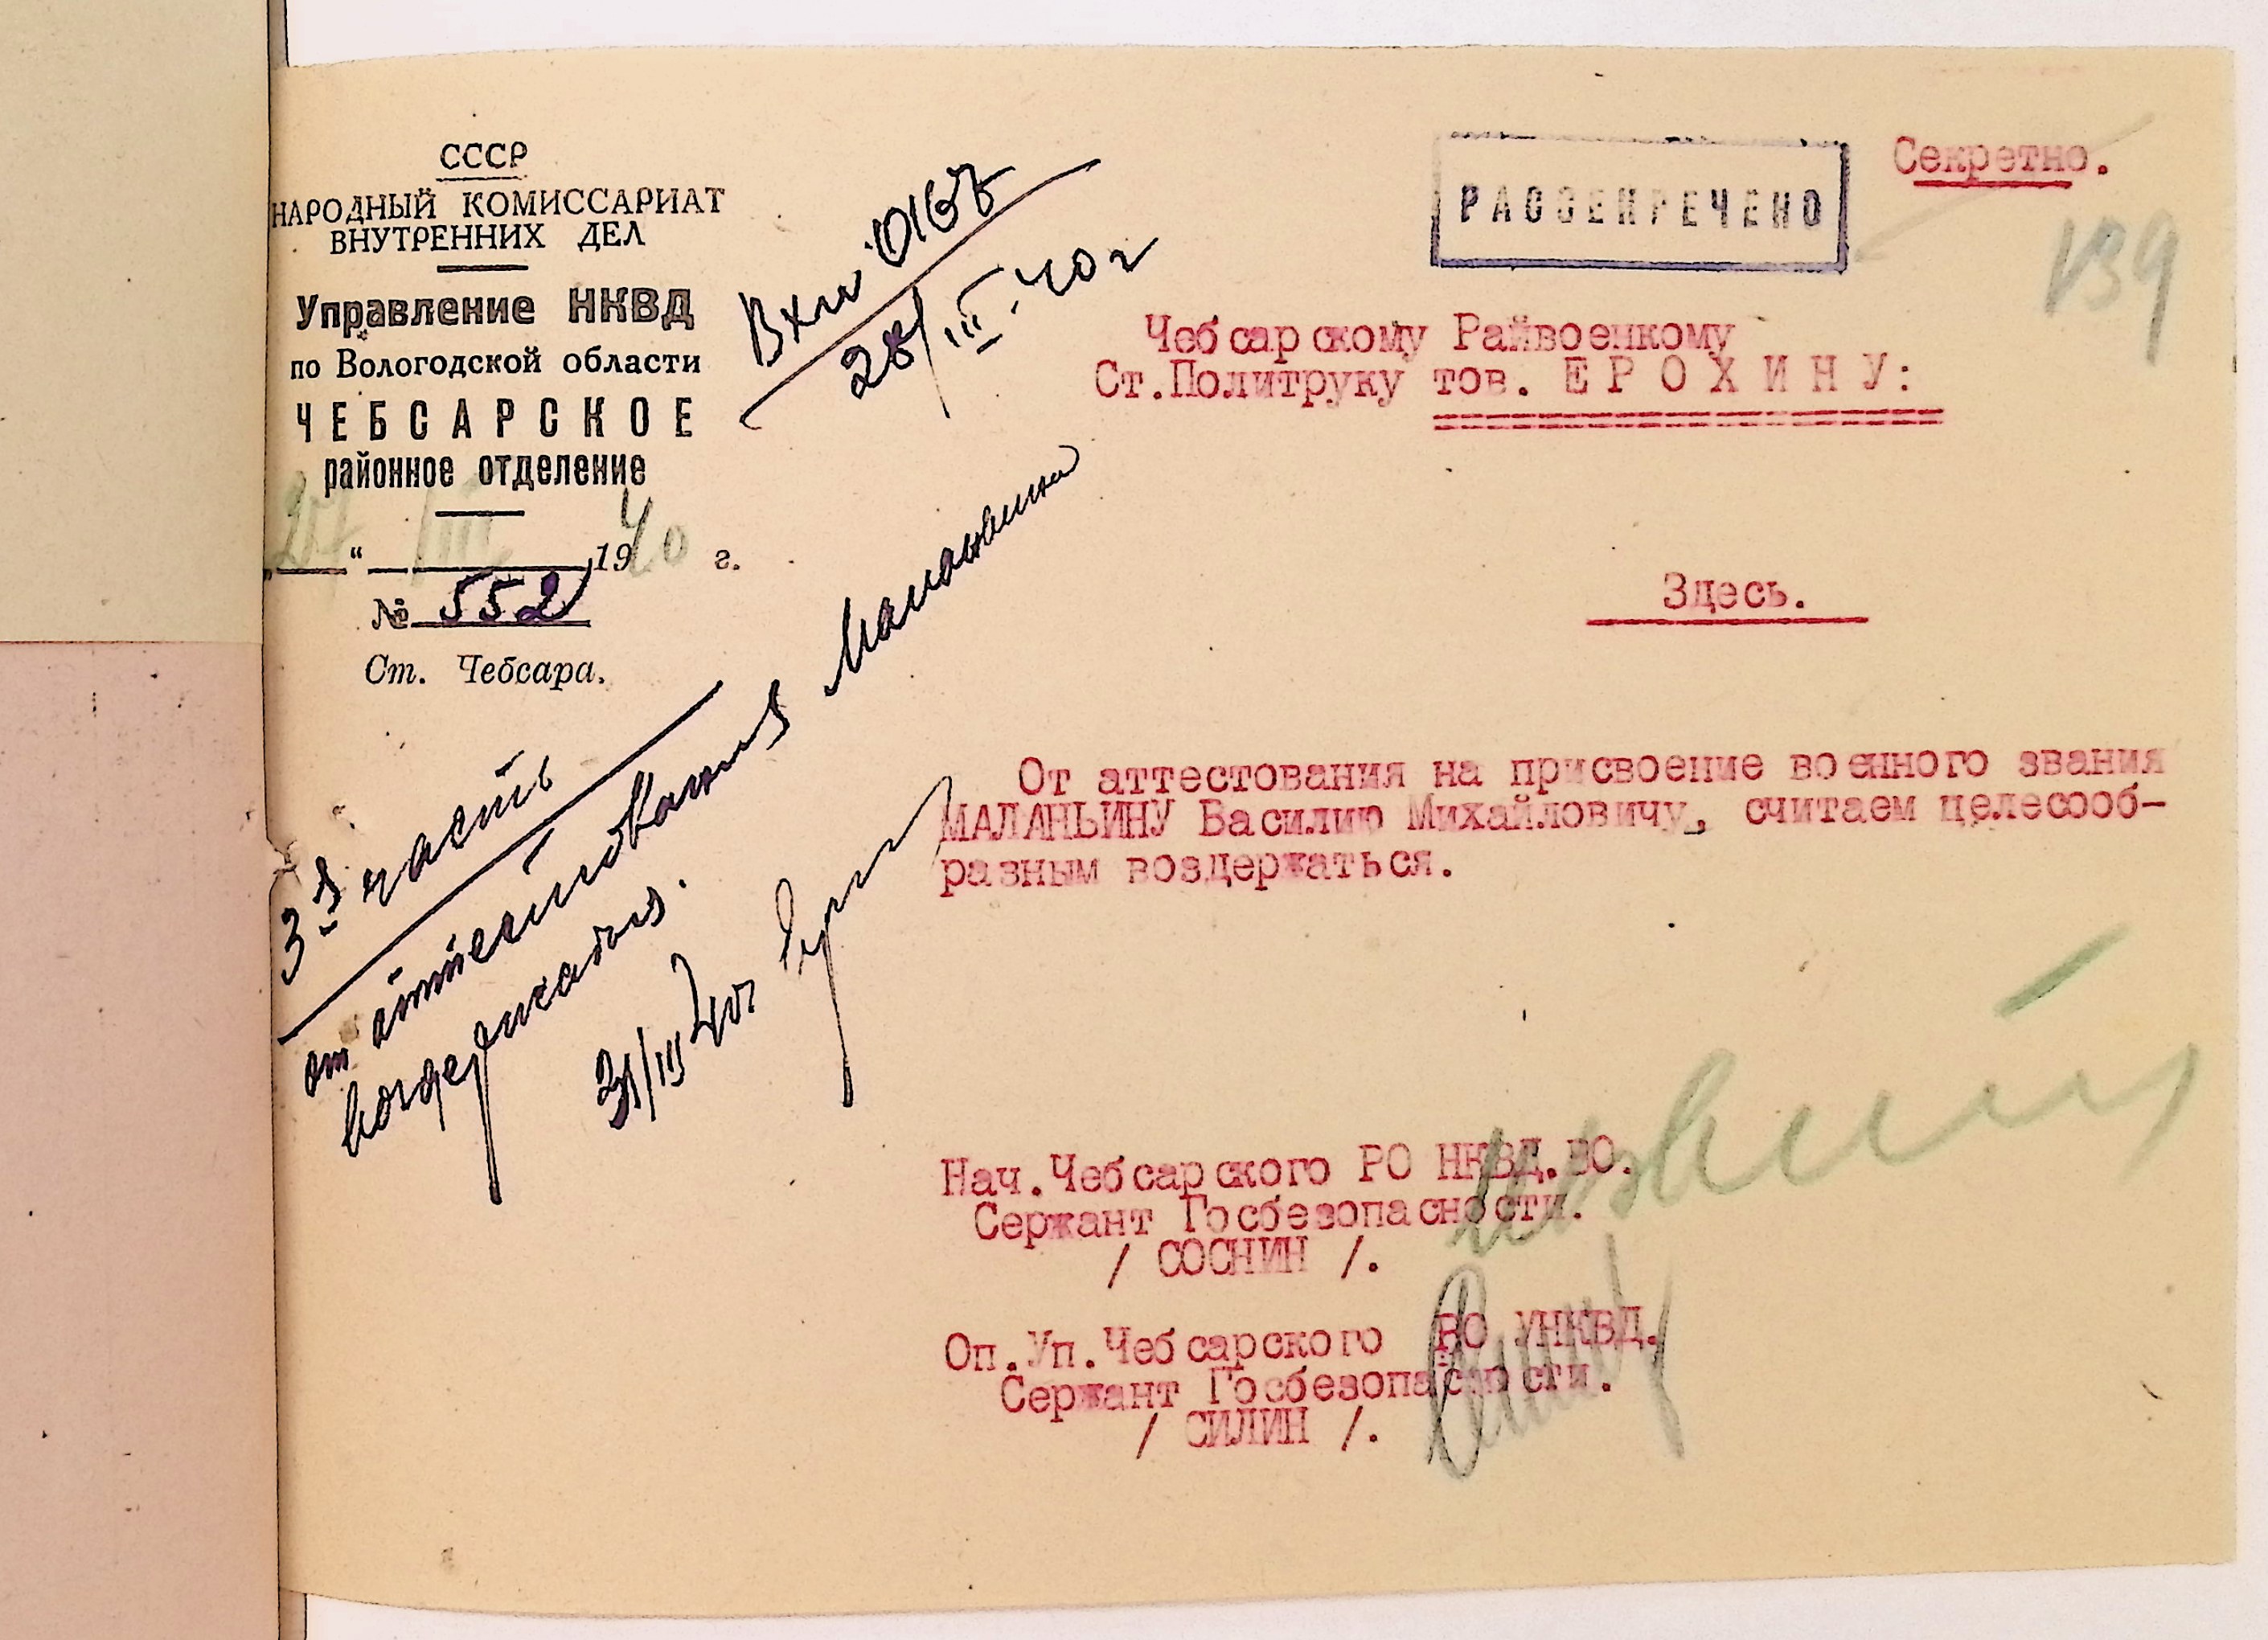 СССР
НАРОДНЫЙ КОМИССАРИАТ
ВНУТРЕННИХ ДЕЛ
Управление НКВД
по Вологодской области
ЧЕБСАРСКОЕ
районное отделение
27 " III 1940 г.
№ 552
Ст. Чебсара.
28/III-40 г
РАССЕКРЕЧЕНО
Секретно.
139
Чебсарскому Райвоенкому
Ст.Политруку тов. ЕРОХИНУ:
Здесь.
3я часть
от аттестования Маланьина
воздержатся.
31/III 40г.
От аттестования на присвоение военного звания
МАЛАНЬИНУ Василию Михайловичу, считаем целесооб-
разным воздержаться.
Нач.Чебсарского РО НКВД.ВО.
Сержант Госбезопасности.
/ СОСНИН /.
Оп.Уп.Чебсарского РО УНКВД.
Сержант Госбезопасности.
/ СИЛИН /.